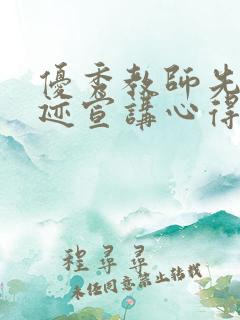 優秀教師先
迹宣講心得
程尋尋
未经同意禁止转载